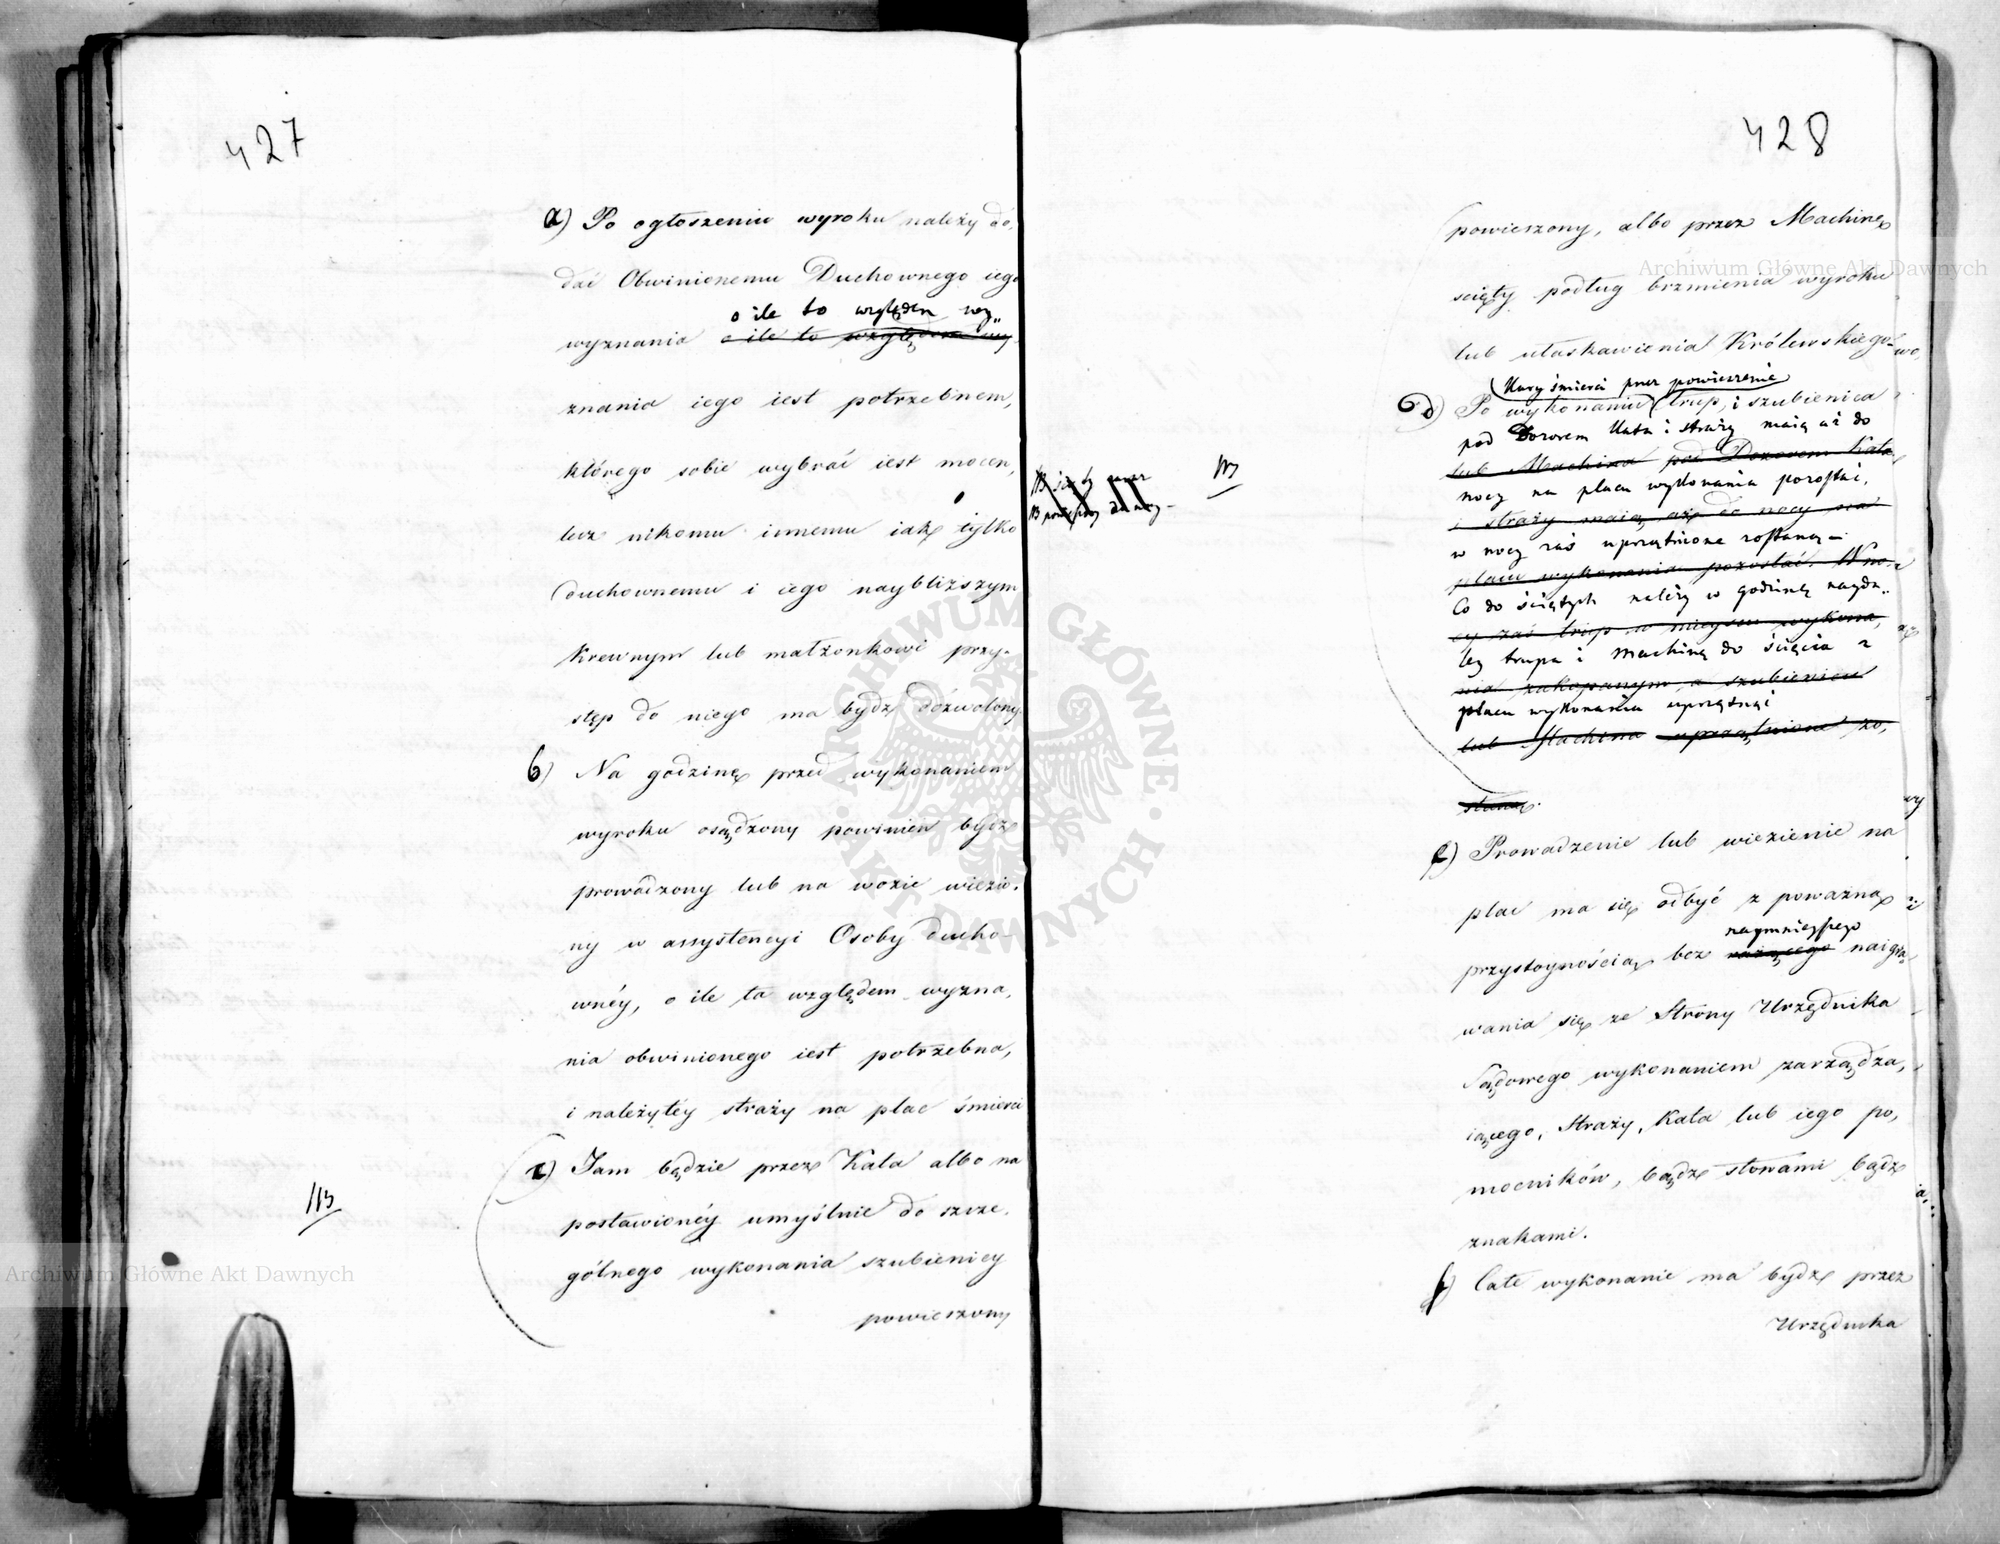 427
a) Po ogłoszeniu wyroku należy do,
dać Obwinionemu Duchownego iego
o ile to względem wy„
wyznania o ile to względem wy
znania iego iest potrzebnem,
którego sobie wybrać iest mocen,
lecz nikomu innemu iak tylko
duchownemu i iego naybliższym
Krewnym lub małżonkowi przy-
stęp do niego ma bydź dozwolony
b) Na godzinę przed wykonaniem
wyroku osądzony powinien bydź
prowadzony lub na wozie wiezio.
ny w assystencyi Osoby ducho-
wnéy, o ile ta względem wyzna,
nia obwinionego iest potrzebna,
i należytéy straży na plac śmierci
NB
c) Tam będzie przez Kata albo na
postawionéy umyślnie do szcze.
gólnego wykonania szubienicy
powieszony
428
powieszony, albo przez Machinę
ścięty podług brzmienia wyroku
lub ułaskawienia Królewskiego
Kary śmierci przez powieszenie
d) Po wykonaniu trup, i szubienica
pod Dozorem Kata i straży maią aż do
lub Machina pod Dozorem Kata
nocy na placu wykonania pozostać,
i straży maią aż do nocy na
w nocy zaś uprzątnione zostaną –
placu wykonania pozostać. W no-
Co do ściętych należy w godzinę nayda„
cy zaś trup w mieyscu wykona,
ley trupa i Machinę do ścięcia z
nia zakopanym, a szubienica
placu wykonania uprzątnąć
lub Machina uprzątniona zo,
stanie.
NB
e) Prowadzenie lub wiezienie na
plac ma się odbyć z poważną
naymnieyszego
przystoynością bez naigra,
wania się ze Strony Urzędnika
Sądowego wykonaniem zarządza,
iącego, Straży, Kata lub iego po,
mocników, bądź słowami bądź
znakami.
f) Całe wykonanie ma bydź przez
Urzędnika
ARCHIWUM GŁÓWNE AKT DAWNYCH
Archiwum Główne Akt Dawnych
Archiwum Główne Akt Dawnych